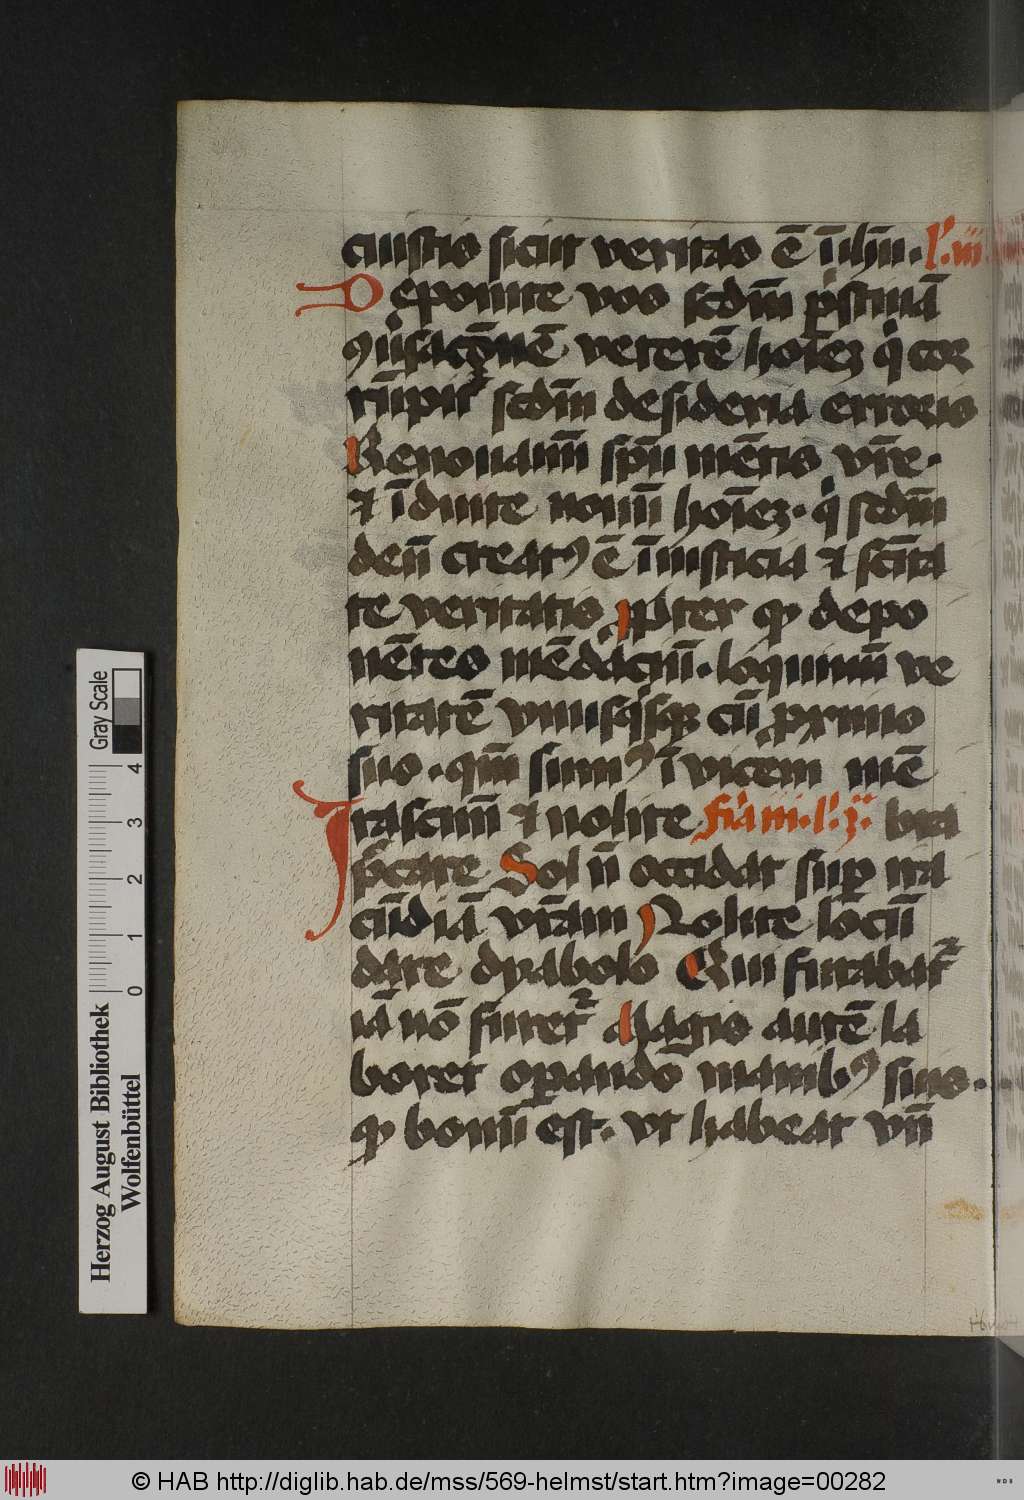 cuistis sicut veritas ē ī ihū. lc̄. iii
Deponite vos scdm̄ pͥstinā
ꝯuͥsacōnē veterē hoīeꝫ qͥ cor
rūpitʳ scdm̄ desideria erroris
Renouamī spū mētis vr̄e.
⁊ īduite nouū hoīeꝫ. qͥ scdm̄
deū creatꝯ ē ī iusticia ⁊ scīta
te veritatis ꝓpter qd̛ depo
nētes mēdaciū. loquimī ve
ritatē vnusqͥsqꝫ cū ꝓximo
suo. qm̄ sumꝯ īvicem mē
Irascimī ⁊ nolite bra
pͨcare Sol nō occidat suꝑ ira
cūdiā vr̄am Nolite locū
dare dyabolo Qui furabatʳ
iā nō furetʳ Magis autē la
boret oꝑando manibꝯ suis.
qd̛ bonū est. vt habeat vn̄
Herzog August Bibliothek
Wolfenbüttel
Gray Scale
0 1 2 3 4
© HAB http://diglib.hab.de/mss/569-helmst/start.htm?image=00282